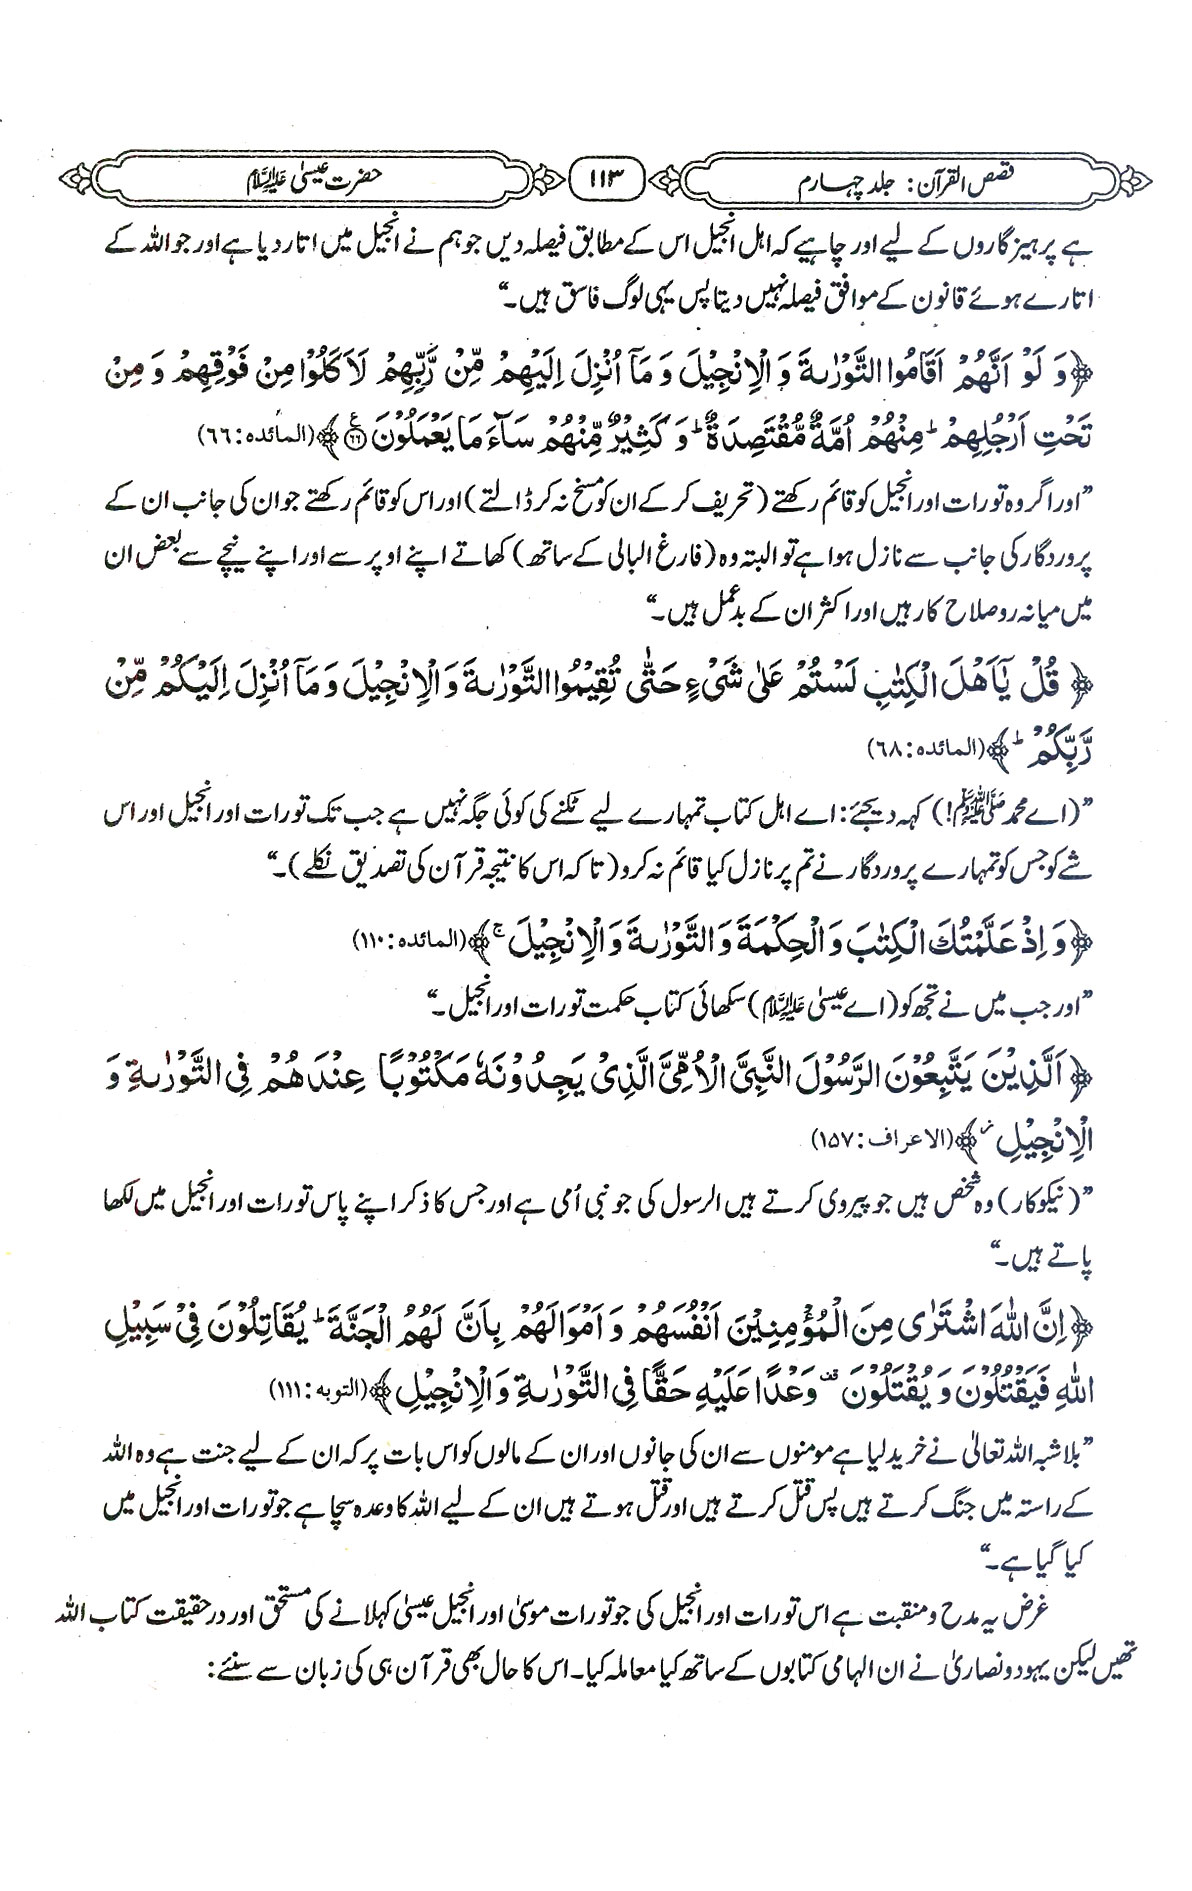 قصص القرآن: جلد چہارم
۱۱۳
حضرت عیسیٰ علیہ السلام
ہے پرہیزگاروں کے لیے اور چاہیے کہ اہل انجیل اس کے مطابق فیصلہ دیں جو ہم نے انجیل میں اتار دیا ہے اور جو اللہ کے
اتارے ہوئے قانون کے موافق فیصلہ نہیں دیتا پس یہی لوگ فاسق ہیں۔“
﴿وَ لَوْ اَنَّهُمْ اَقَامُوا التَّوْرٰىةَ وَ الْاِنْجِيْلَ وَ مَاۤ اُنْزِلَ اِلَيْهِمْ مِّنْ رَّبِّهِمْ لَاَكَلُوْا مِنْ فَوْقِهِمْ وَ مِنْ
تَحْتِ اَرْجُلِهِمْ ؕ مِنْهُمْ اُمَّةٌ مُّقْتَصِدَةٌ ؕ وَ كَثِيْرٌ مِّنْهُمْ سَآءَ مَا يَعْمَلُوْنَ ﴿۶۶﴾ ع﴾ (المائدہ: ۶۶)
”اور اگر وہ تورات اور انجیل کو قائم رکھتے (تحریف کر کے ان کو مسخ نہ کر ڈالتے) اور اس کو قائم رکھتے جو ان کی جانب ان کے
پروردگار کی جانب سے نازل ہوا ہے تو البتہ وہ (فارغ البالی کے ساتھ) کھاتے اپنے اوپر سے اور اپنے نیچے سے بعض ان
میں میانہ رو صلاح کار ہیں اور اکثر ان کے بدعمل ہیں۔“
﴿قُلْ يٰۤاَهْلَ الْكِتٰبِ لَسْتُمْ عَلٰى شَيْءٍ حَتّٰى تُقِيْمُوا التَّوْرٰىةَ وَ الْاِنْجِيْلَ وَ مَاۤ اُنْزِلَ اِلَيْكُمْ مِّنْ
رَّبِّكُمْ ؕ﴾ (المائدہ: ۶۸)
”(اے محمد ﷺ!) کہہ دیجئے: اے اہل کتاب تمہارے لیے ٹکنے کی کوئی جگہ نہیں ہے جب تک تورات اور انجیل اور اس
شے کو جس کو تمہارے پروردگار نے تم پر نازل کیا قائم نہ کرو (تاکہ اس کا نتیجہ قرآن کی تصدیق نکلے)۔“
﴿وَ اِذْ عَلَّمْتُكَ الْكِتٰبَ وَ الْحِكْمَةَ وَ التَّوْرٰىةَ وَ الْاِنْجِيْلَ ۚ﴾ (المائدہ: ۱۱۰)
”اور جب میں نے تجھ کو (اے عیسیٰ علیہ السلام) سکھائی کتاب حکمت تورات اور انجیل۔“
﴿اَلَّذِيْنَ يَتَّبِعُوْنَ الرَّسُوْلَ النَّبِيَّ الْاُمِّيَّ الَّذِيْ يَجِدُوْنَهٗ مَكْتُوْبًا عِنْدَهُمْ فِي التَّوْرٰىةِ وَ
الْاِنْجِيْلِ ؗ﴾ (الاعراف: ۱۵۷)
”(نیکوکار) وہ شخص ہیں جو پیروی کرتے ہیں الرسول کی جو نبی اُمی ہے اور جس کا ذکر اپنے پاس تورات اور انجیل میں لکھا
پاتے ہیں۔“
﴿اِنَّ اللّٰهَ اشْتَرٰى مِنَ الْمُؤْمِنِيْنَ اَنْفُسَهُمْ وَ اَمْوَالَهُمْ بِاَنَّ لَهُمُ الْجَنَّةَ ؕ يُقَاتِلُوْنَ فِيْ سَبِيْلِ
اللّٰهِ فَيَقْتُلُوْنَ وَ يُقْتَلُوْنَ ۫ وَعْدًا عَلَيْهِ حَقًّا فِي التَّوْرٰىةِ وَ الْاِنْجِيْلِ﴾ (التوبہ: ۱۱۱)
”بلاشبہ اللہ تعالیٰ نے خرید لیا ہے مومنوں سے ان کی جانوں اور ان کے مالوں کو اس بات پر کہ ان کے لیے جنت ہے وہ اللہ
کے راستہ میں جنگ کرتے ہیں پس قتل کرتے ہیں اور قتل ہوتے ہیں ان کے لیے اللہ کا وعدہ سچا ہے جو تورات اور انجیل میں
کیا گیا ہے۔“
غرض یہ مدح و منقبت ہے اس تورات اور انجیل کی جو تورات موسیٰ اور انجیل عیسیٰ کہلانے کی مستحق اور درحقیقت کتاب اللہ
تھیں لیکن یہود و نصاریٰ نے ان الہامی کتابوں کے ساتھ کیا معاملہ کیا۔ اس کا حال بھی قرآن ہی کی زبان سے سنئے: